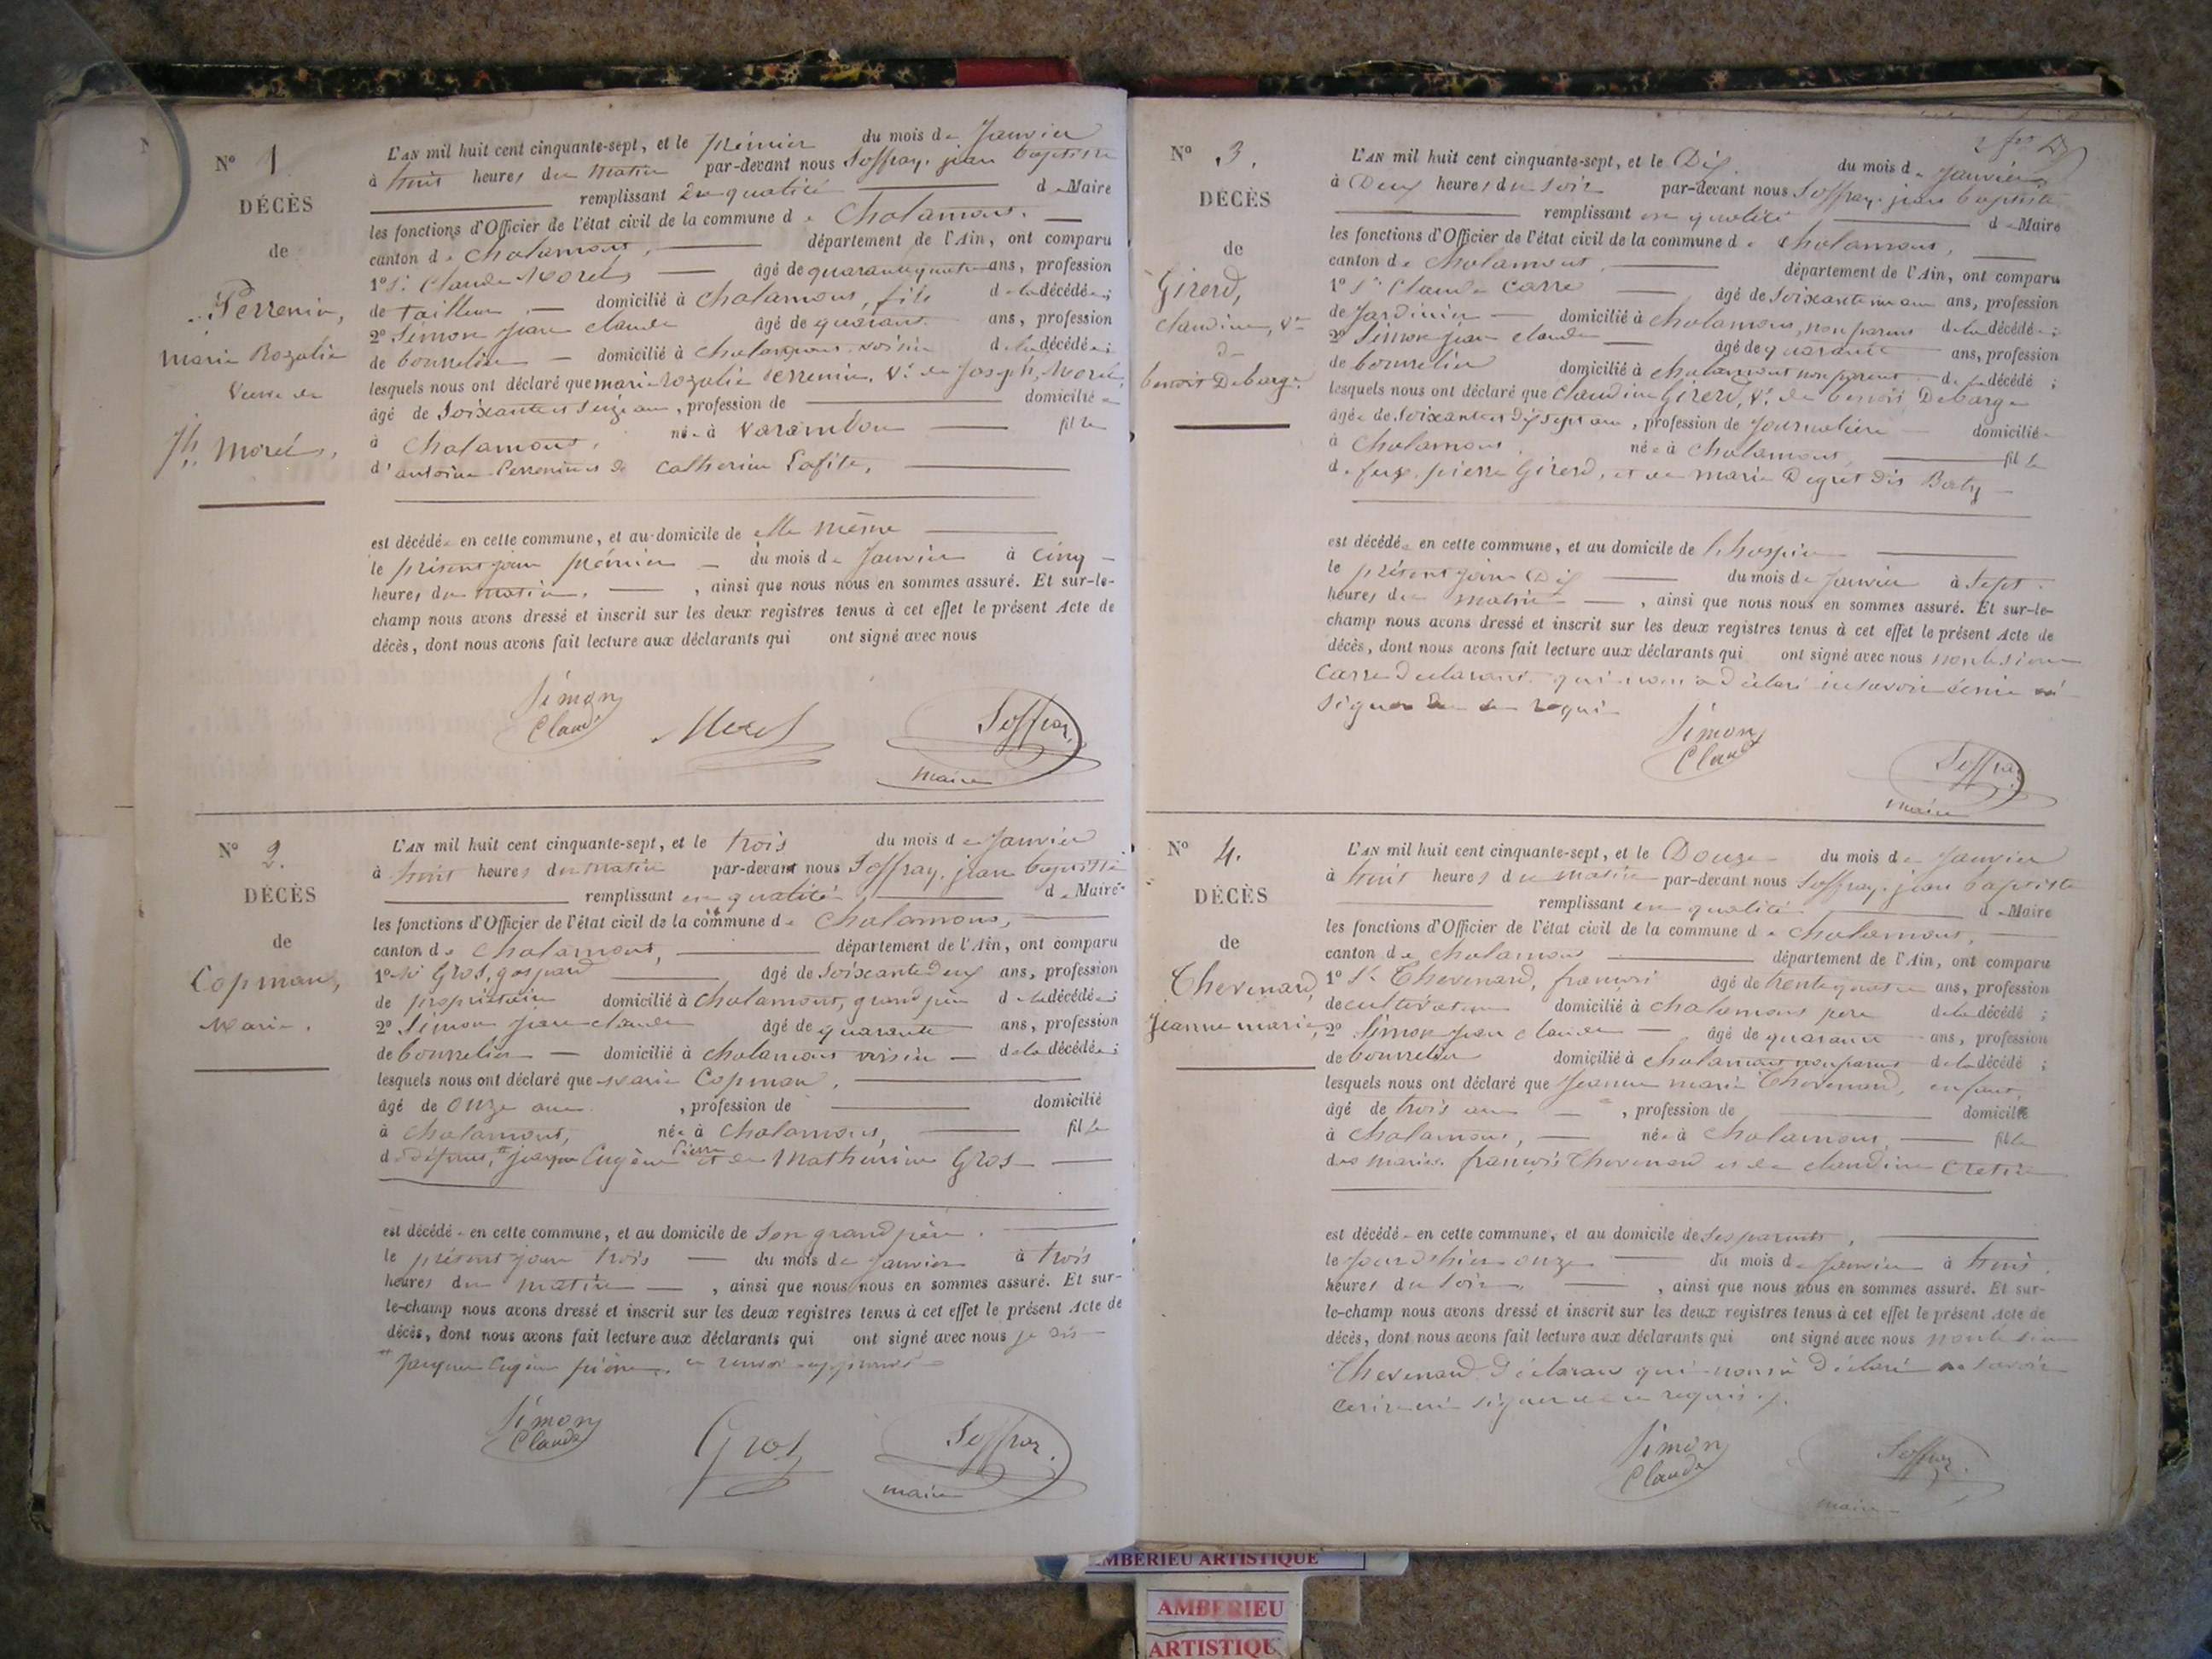 N° 1
DÉCÈS
de
Perrenin,
Marie Rozalie
Veuve de
Jh Morel,
L'AN mil huit cent cinquante-sept, et le premier du mois de Janvier
à huit heures du matin par-devant nous Soffray, jean baptiste
remplissant en qualité de Maire
les fonctions d'Officier de l'état civil de la commune de Chalamont.
canton de Chalamont, département de l'Ain, ont comparu
1° Sr Claude Morel âgé de quarante quatre ans, profession
de tailleur, domicilié à Chalamont, fils de la décédée;
2° Simon Jean Claude âgé de quarante ans, profession
de bourrelier domicilié à Chalamont voisin de la décédée;
lesquels nous ont déclaré que marie rozalie Perrenin, Ve de Joseph, Morel,
âgé de Soixante et Seize ans, profession de domicilié
à Chalamont, née à Varambon fille
d'antoine Perrenin et de Catherine Lafite,
est décédée en cette commune, et au domicile de elle même
le présent jour premier du mois de Janvier à cinq
heures du matin, ainsi que nous nous en sommes assuré. Et sur-le-
champ nous avons dressé et inscrit sur les deux registres tenus à cet effet le présent Acte de
décès, dont nous avons fait lecture aux déclarants qui ont signé avec nous
Simon
Claude
Morel
Soffray
maire
N° 2.
DÉCÈS
de
Copman,
Marie.
L'AN mil huit cent cinquante-sept, et le trois du mois de Janvier
à huit heures du matin par-devant nous Soffray, jean baptiste
remplissant en qualité de Maire
les fonctions d'Officier de l'état civil de la commune de Chalamont,
canton de Chalamont, département de l'Ain, ont comparu
1° Sr Gros, gaspard âgé de Soixante Deux ans, profession
de propriétaire domicilié à Chalamont, grand père de la décédée;
2° Simon Jean claude âgé de quarante ans, profession
de bourrelier domicilié à Chalamont voisin de la décédée;
lesquels nous ont déclaré que Marie Copman,
âgé de onze ans, profession de domicilié
à Chalamont, née à Chalamont, fille
de Jacques Eugène Pierre et de Mathurine Gros
est décédé en cette commune, et au domicile de Son grand père.
le présent jour trois du mois de Janvier à trois
heures du matin, ainsi que nous nous en sommes assuré. Et sur-
le-champ nous avons dressé et inscrit sur les deux registres tenus à cet effet le présent Acte de
décès, dont nous avons fait lecture aux déclarants qui ont signé avec nous je dis
Jacques Eugène pierre. renvoi approuvé
Simon
Claude
Gros
Soffray
maire
N° 3.
DÉCÈS
de
Girerd,
claudine, Ve
De
benoit Debarge.
L'AN mil huit cent cinquante-sept, et le Dix du mois de Janvier
à Deux heures du soir par-devant nous Soffray, jean baptiste
remplissant en qualité de Maire
les fonctions d'Officier de l'état civil de la commune de Chalamont,
canton de Chalamont, département de l'Ain, ont comparu
1° Sr Claude Carre âgé de Soixante un ans, profession
de Jardinier domicilié à Chalamont, non parent de la décédée;
2° Simon jean claude âgé de quarante ans, profession
de bourrelier domicilié à Chalamont non parent de la décédé;
lesquels nous ont déclaré que Claudine Girerd, Ve de benoit Debarge
âgée de Soixante et Dix sept ans, profession de Journalière domicilié
à Chalamont, née à Chalamont, fille
de feux pierre Girerd, et de marie Degret dit Baty
est décédée en cette commune, et au domicile de l'hospice
le présent jour Dix du mois de Janvier à Sept
heures du matin, ainsi que nous nous en sommes assuré. Et sur-le-
champ nous avons dressé et inscrit sur les deux registres tenus à cet effet le présent Acte de
décès, dont nous avons fait lecture aux déclarants qui ont signé avec nous non le sieur
Carre Déclarant qui nous a déclaré ne savoir écrire ni
signer de ce requis
Simon
Claude
Soffray
maire
N° 4.
DÉCÈS
de
Thevenard,
Jeanne marie,
L'AN mil huit cent cinquante-sept, et le Douze du mois de Janvier
à huit heures du matin par-devant nous Soffray, jean baptiste
remplissant en qualité de Maire
les fonctions d'Officier de l'état civil de la commune de Chalamont,
canton de Chalamont département de l'Ain, ont comparu
1° Sr Thevenard, françois âgé de trente quatre ans, profession
de cultivateur domicilié à Chalamont père de la décédé;
2° Simon Jean claude âgé de quarante ans, profession
de bourrelier domicilié à Chalamont non parent de la décédé;
lesquels nous ont déclaré que Jeanne marie Thevenard, enfant,
âgé de trois ans, profession de domicilié
à Chalamont, née à Chalamont, fille
des mariés françois Thevenard et de claudine Cretin
est décédé en cette commune, et au domicile de Ses parents,
le jour d'hier onze du mois de Janvier à huit
heures du soir, ainsi que nous nous en sommes assuré. Et sur-
le-champ nous avons dressé et inscrit sur les deux registres tenus à cet effet le présent Acte de
décès, dont nous avons fait lecture aux déclarants qui ont signé avec nous non le sieur
Thevenard Déclarant qui nous a Déclaré ne savoir
écrire ni signer de ce requis.
Simon
Claude
Soffray
maire
AMBERIEU ARTISTIQUE
AMBERIEU
ARTISTIQU